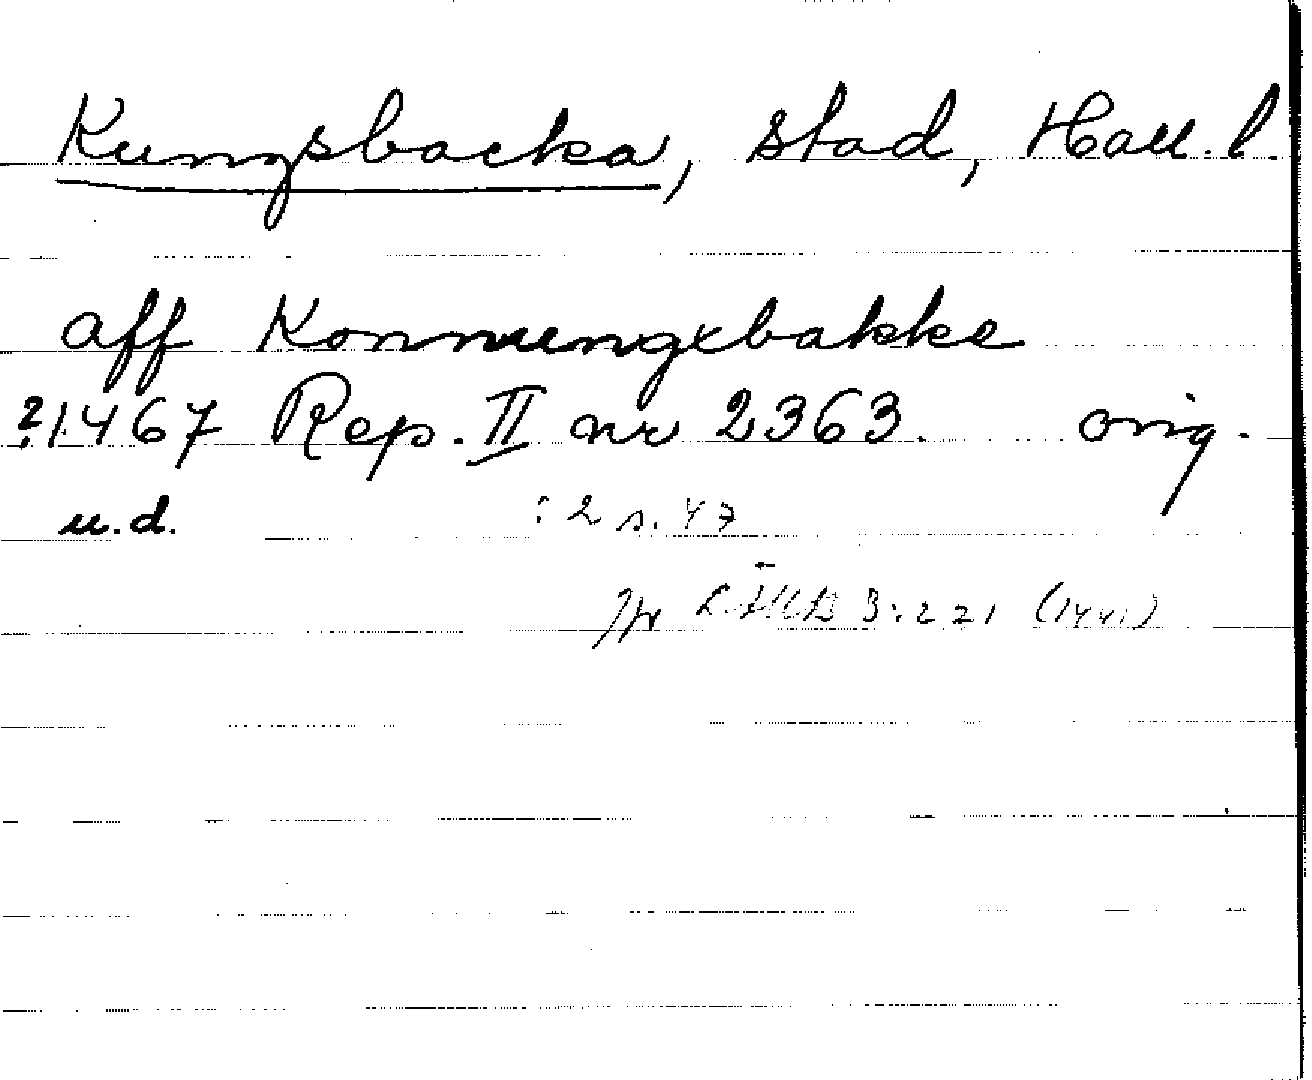 Kungsbacka, stad, Hall. l.
aff Konnungxbakke
?1467 Rep. II nr 2363. orig.
u.d. : 2 s. 47
Jfr 3:221 (1441)